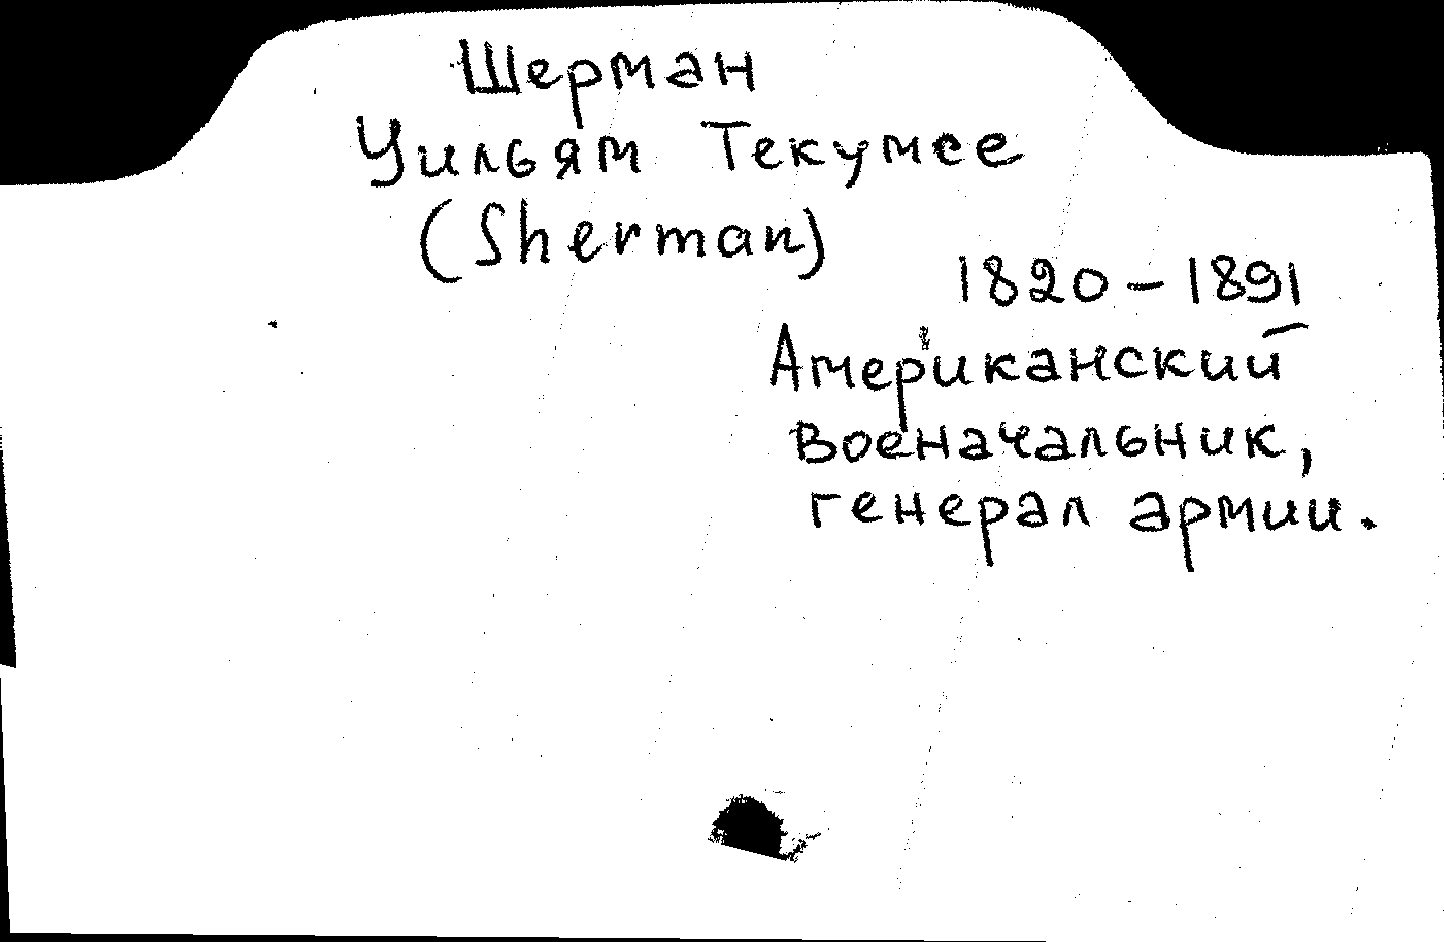 Шерман
Уильям Текумсе
(Sherman)
1820-1891
Американский
военачальник,
генерал армии.